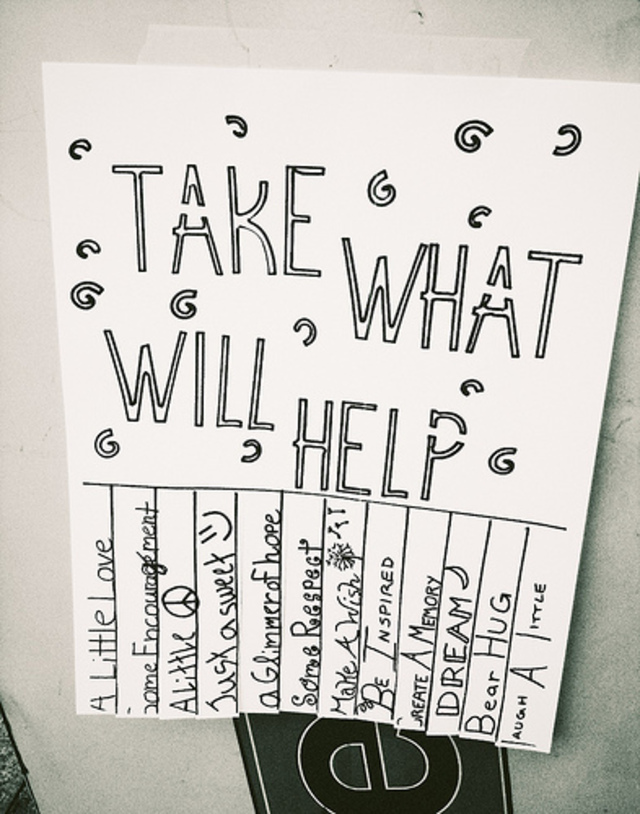 TAKE
WHAT
WILL
HELP
A Little Love
Some Encouragement
A Little ☮
Just a sweet =)
a Glimmer of hope
Some Respect
Make A Wish
Be Inspired
Create A Memory
DREAM
Bear Hug
Laugh A little
e